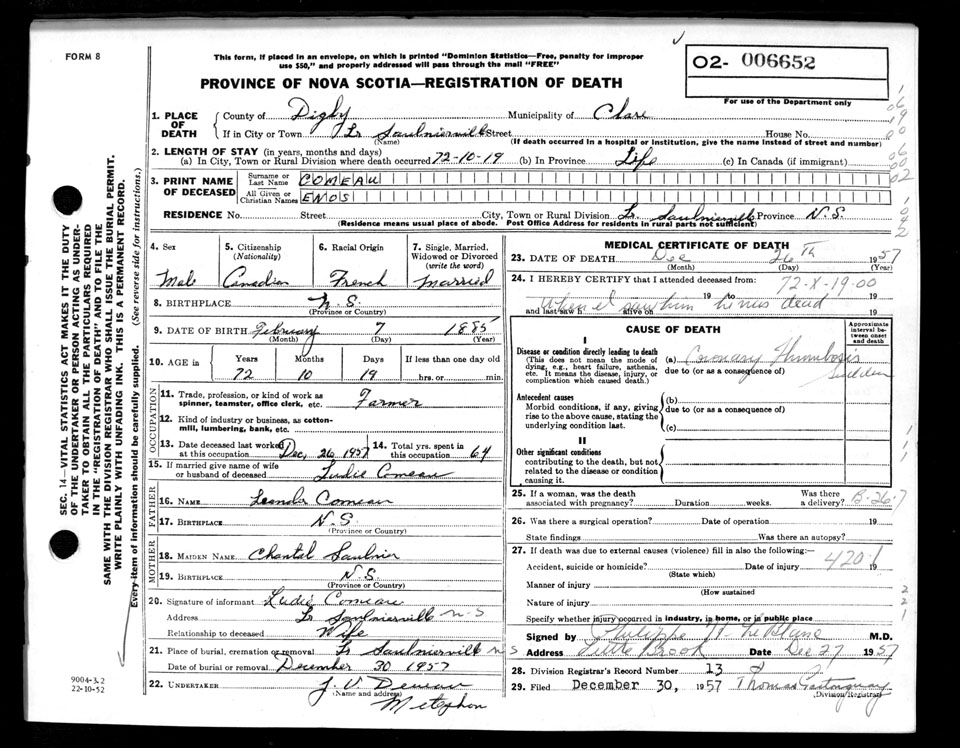 FORM 8
This form, if placed in an envelope, on which is printed "Dominion Statistics—Free, penalty for improper
use $50," and properly addressed will pass through the mail "FREE"
PROVINCE OF NOVA SCOTIA—REGISTRATION OF DEATH
O2- 006652
For use of the Department only
1. PLACE OF DEATH County of Digby Municipality of Clare
If in City or Town Lr Saulnierville Street House No.
(Name) (If death occurred in a hospital or institution, give the name instead of street and number)
2. LENGTH OF STAY (in years, months and days)
(a) In City, Town or Rural Division where death occurred 72-10-19 (b) In Province Life (c) In Canada (if immigrant)
3. PRINT NAME OF DECEASED Surname or Last Name COMEAU
All Given or Christian Names ENOS
RESIDENCE No. Street City, Town or Rural Division Lr. Saulnierville Province N.S.
(Residence means usual place of abode. Post Office Address for residents in rural parts not sufficient)
4. Sex Male
5. Citizenship (Nationality) Canadian
6. Racial Origin French
7. Single, Married, Widowed or Divorced (write the word) Married
8. BIRTHPLACE N.S.
(Province or Country)
9. DATE OF BIRTH February 7 1885
(Month) (Day) (Year)
10. AGE in Years Months Days If less than one day old
72 10 19 hrs. or min.
OCCUPATION
11. Trade, profession, or kind of work as spinner, teamster, office clerk, etc. Farmer
12. Kind of industry or business, as cotton-mill, lumbering, bank, etc.
13. Date deceased last worked at this occupation Dec, 26 1957
14. Total yrs. spent in this occupation 64
15. If married give name of wife or husband of deceased Ludie Comeau
FATHER
16. NAME Leander Comeau
17. BIRTHPLACE N.S.
(Province or Country)
MOTHER
18. MAIDEN NAME Chantal Saulnier
19. BIRTHPLACE N.S.
(Province or Country)
20. Signature of informant Ludie Comeau
Address Lr Saulnierville N-S
Relationship to deceased Wife
21. Place of burial, cremation or removal Lr Saulnierville N S
Date of burial or removal December 30 1957
22. UNDERTAKER J. V. Deveau
(Name and address)
Meteghan
MEDICAL CERTIFICATE OF DEATH
23. DATE OF DEATH Dec 26th 1957
(Month) (Day) (Year)
24. I HEREBY CERTIFY that I attended deceased from: 72-X-19-00
19 to 19
and last saw h alive on 19
When I saw him he was dead
CAUSE OF DEATH
Approximate interval between onset and death
I
Disease or condition directly leading to death
(This does not mean the mode of dying, e.g., heart failure, asthenia, etc. It means the disease, injury, or complication which caused death.)
(a) Coronary Thrombosis Sudden
due to (or as a consequence of)
Antecedent causes
Morbid conditions, if any, giving rise to the above cause, stating the underlying condition last.
(b)
due to (or as a consequence of)
(c)
II
Other significant conditions
contributing to the death, but not related to the disease or condition causing it.
25. If a woman, was the death associated with pregnancy? Duration weeks. Was there a delivery? B-26-7
26. Was there a surgical operation? Date of operation 19
State findings Was there an autopsy?
27. If death was due to external causes (violence) fill in also the following:—
Accident, suicide or homicide? Date of injury 19
(State which)
420.1
Manner of injury
(How sustained)
Nature of injury
Specify whether injury occurred in industry, in home, or in public place
Signed by Philippe H LeBlanc M.D.
Address Little Brook Date Dec 27 1957
28. Division Registrar's Record Number 13
29. Filed December 30, 1957 Thomas
(Division Registrar)
SEC. 14—VITAL STATISTICS ACT MAKES IT THE DUTY
OF THE UNDERTAKER OR PERSON ACTING AS UNDER-
TAKER TO OBTAIN ALL THE PARTICULARS REQUIRED
IN THE "REGISTRATION OF DEATH" AND TO FILE THE
SAME WITH THE DIVISION REGISTRAR WHO SHALL ISSUE THE BURIAL PERMIT.
WRITE PLAINLY WITH UNFADING INK. THIS IS A PERMANENT RECORD.
Every item of information should be carefully supplied. (See reverse side for instructions.)
9004-3.2
22-10-52